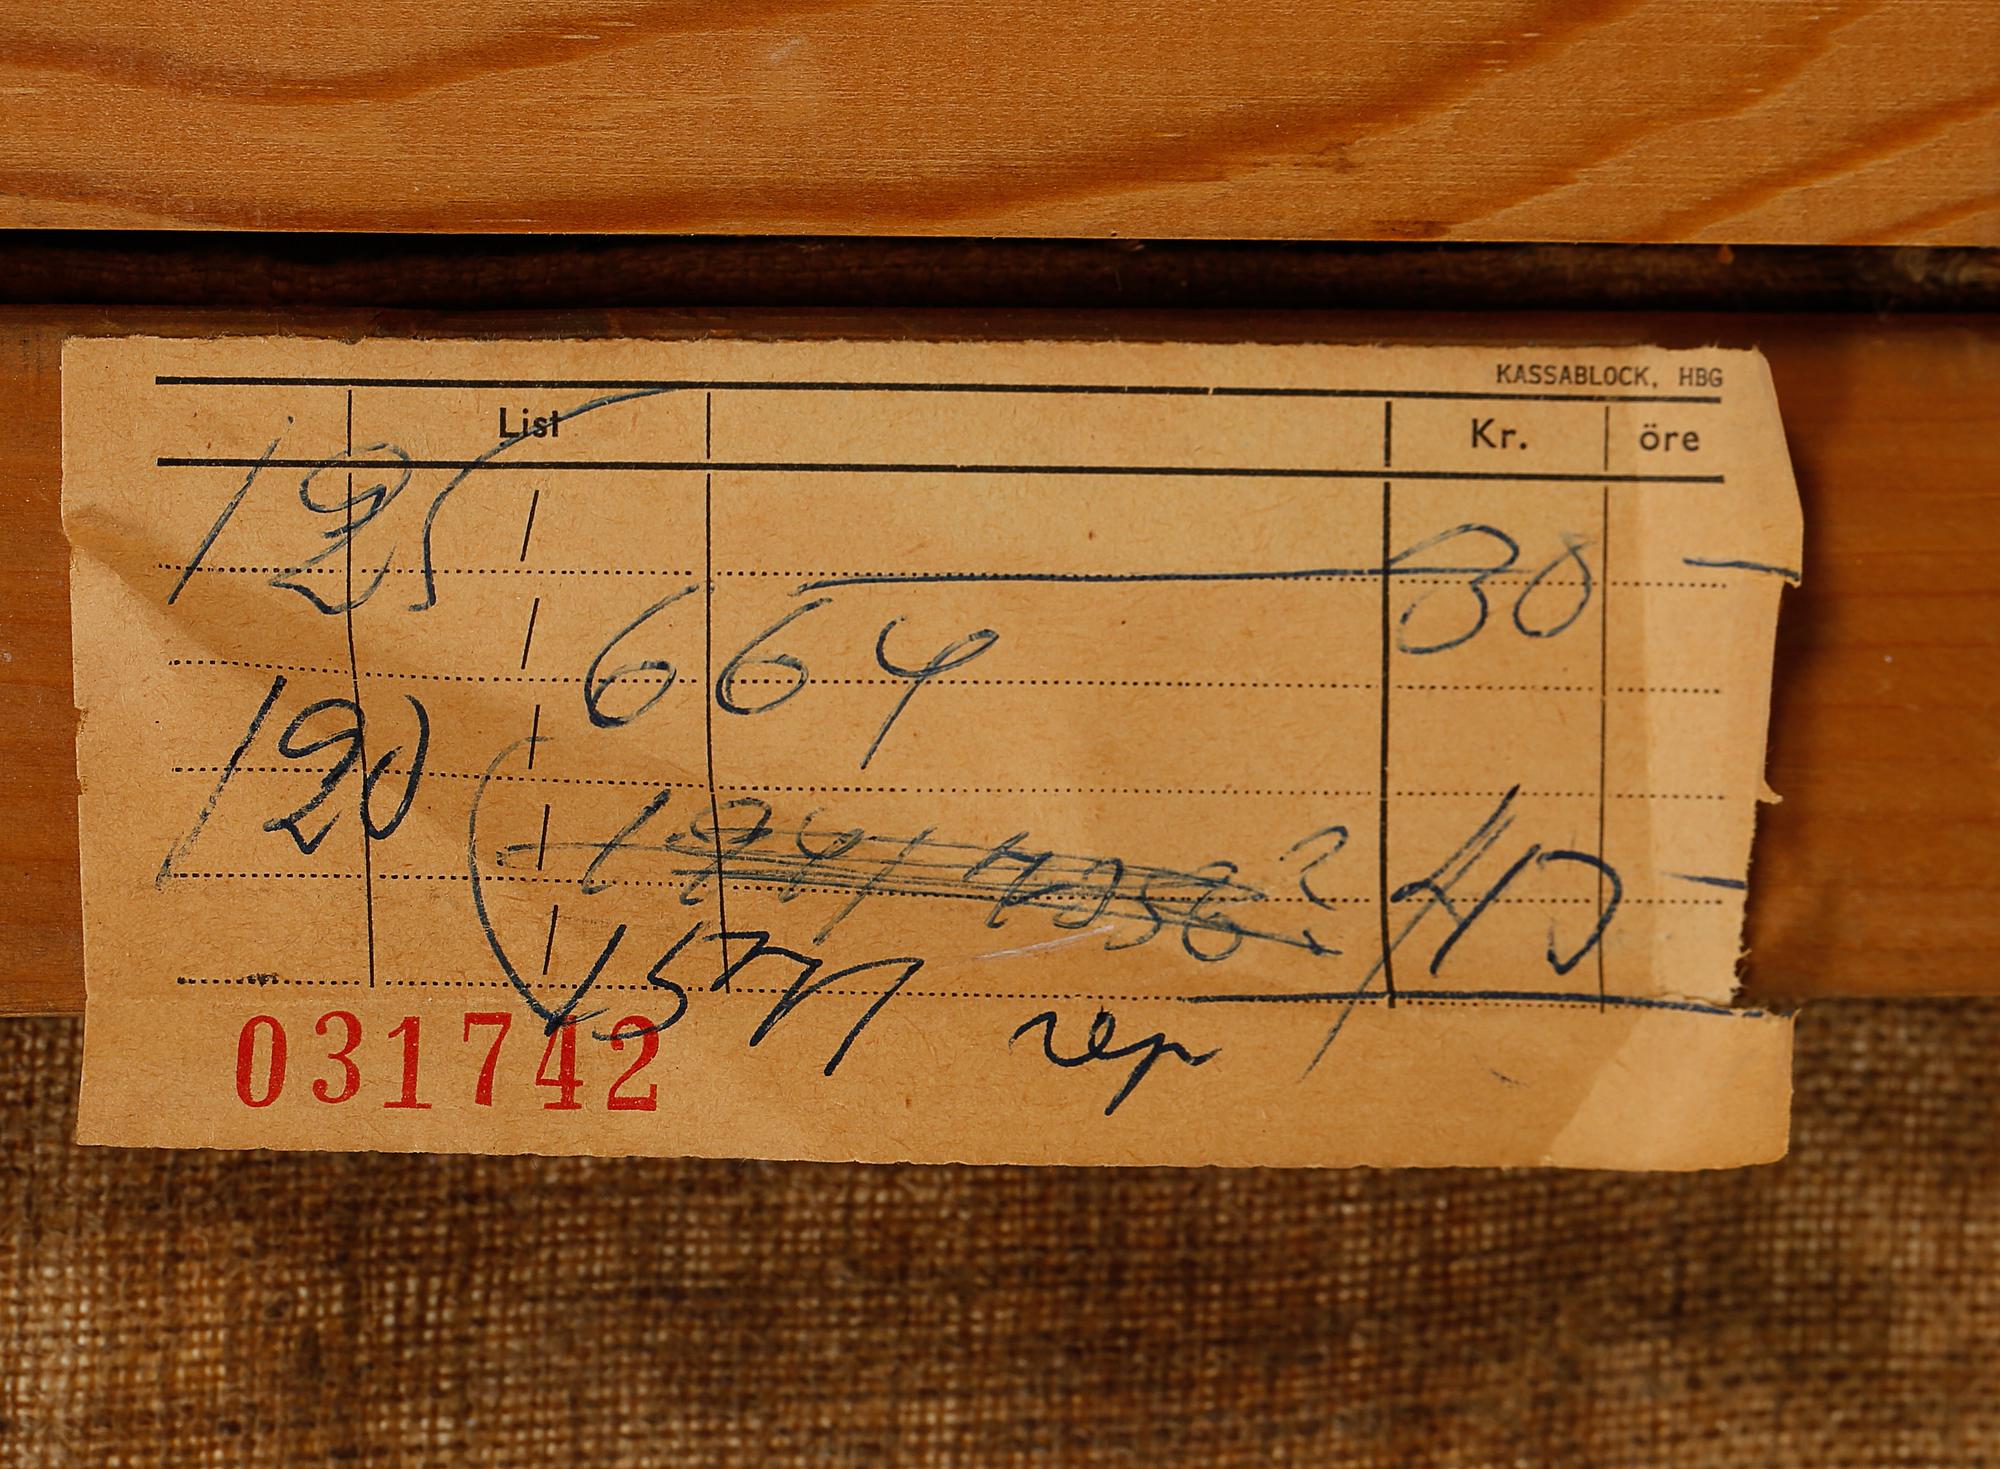 KASSABLOCK, HBG
List Kr. öre
125 30 —
664
120 40 —
rep
031742